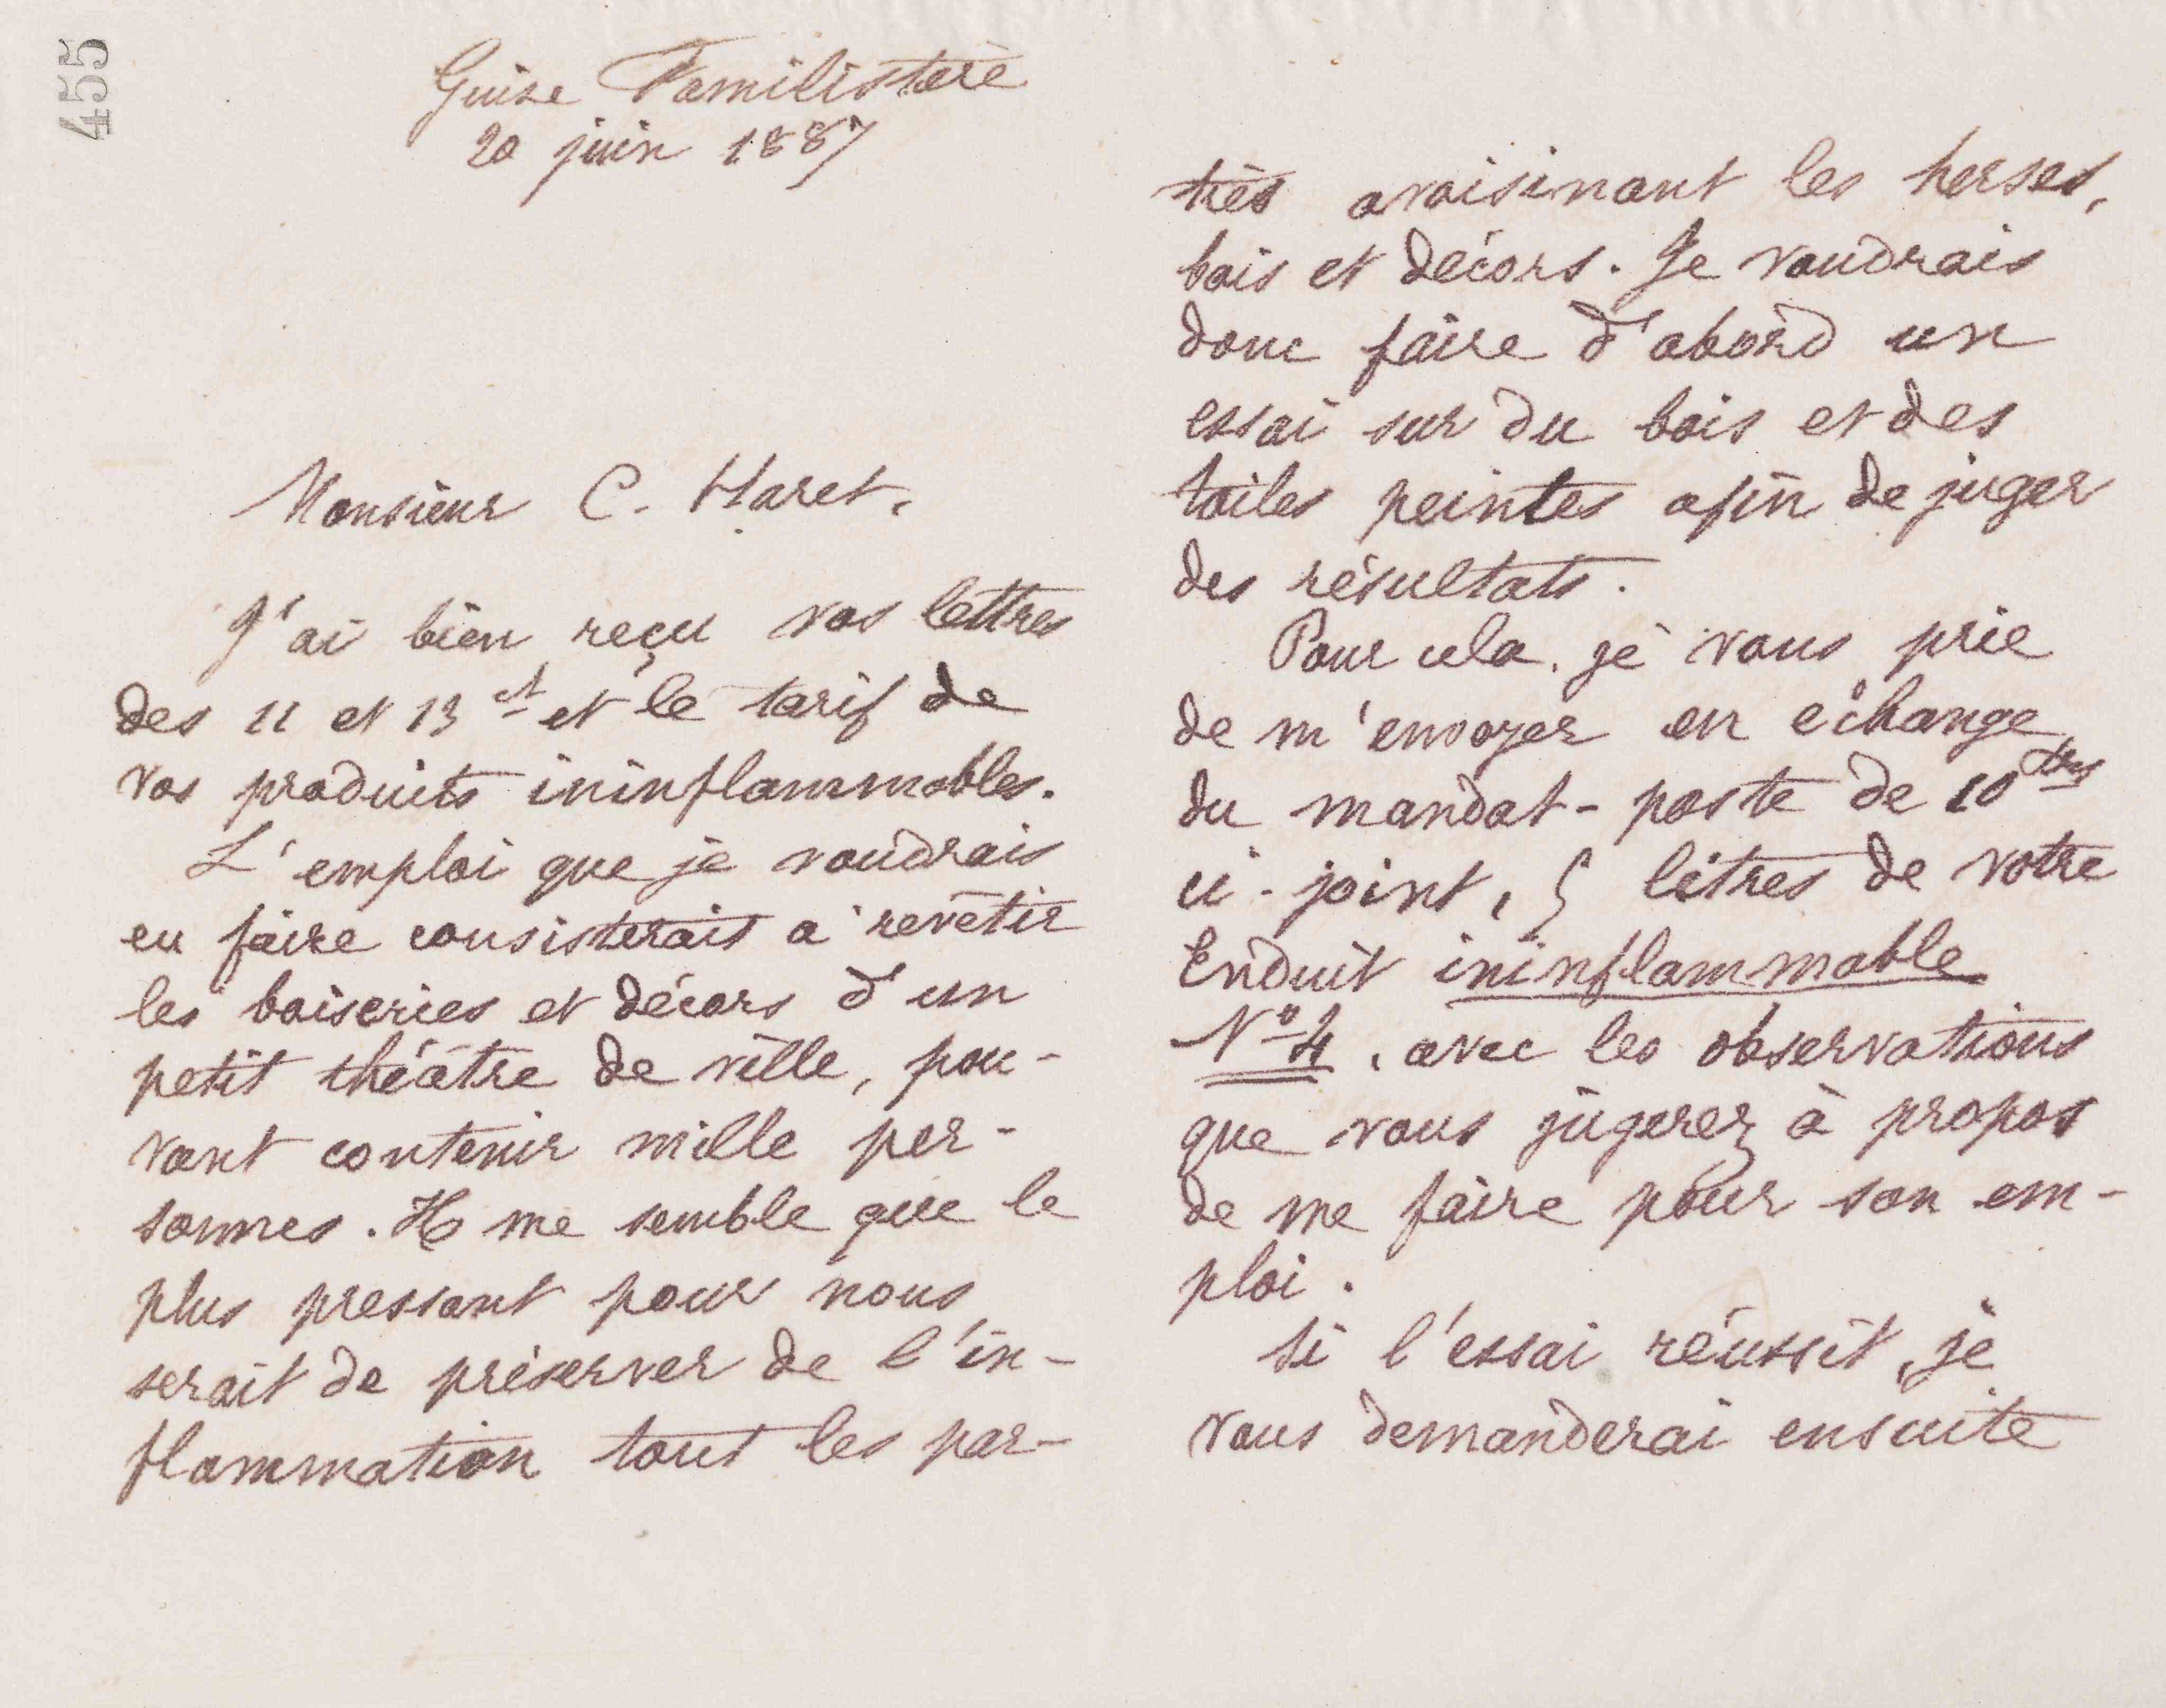 455
Guise Familistère
20 juin 1887
Monsieur C. Haret,
J'ai bien reçu vos lettres
des 11 et 13 ct et le tarif de
vos produits ininflammables.
L'emploi que je voudrais
en faire consisterait à revêtir
les boiseries et décors d'un
petit théâtre de ville, pou-
vant contenir mille per-
sonnes. Il me semble que le
plus pressant pour nous
serait de préserver de l'in-
flammation tout les par-
ties avoisinant les herses,
bois et décors. Je voudrais
donc faire d'abord un
essai sur du bois et des
toiles peintes afin de juger
des résultats.
Pour cela, je vous prie
de m'envoyer en échange
du mandat-poste de 10
ci-joint, 5 litres de votre
Enduit ininflammable
No 4, avec les observations
que vous jugerez à propos
de me faire pour son em-
ploi.
Si l'essai réussit, je
vous demanderai ensuite